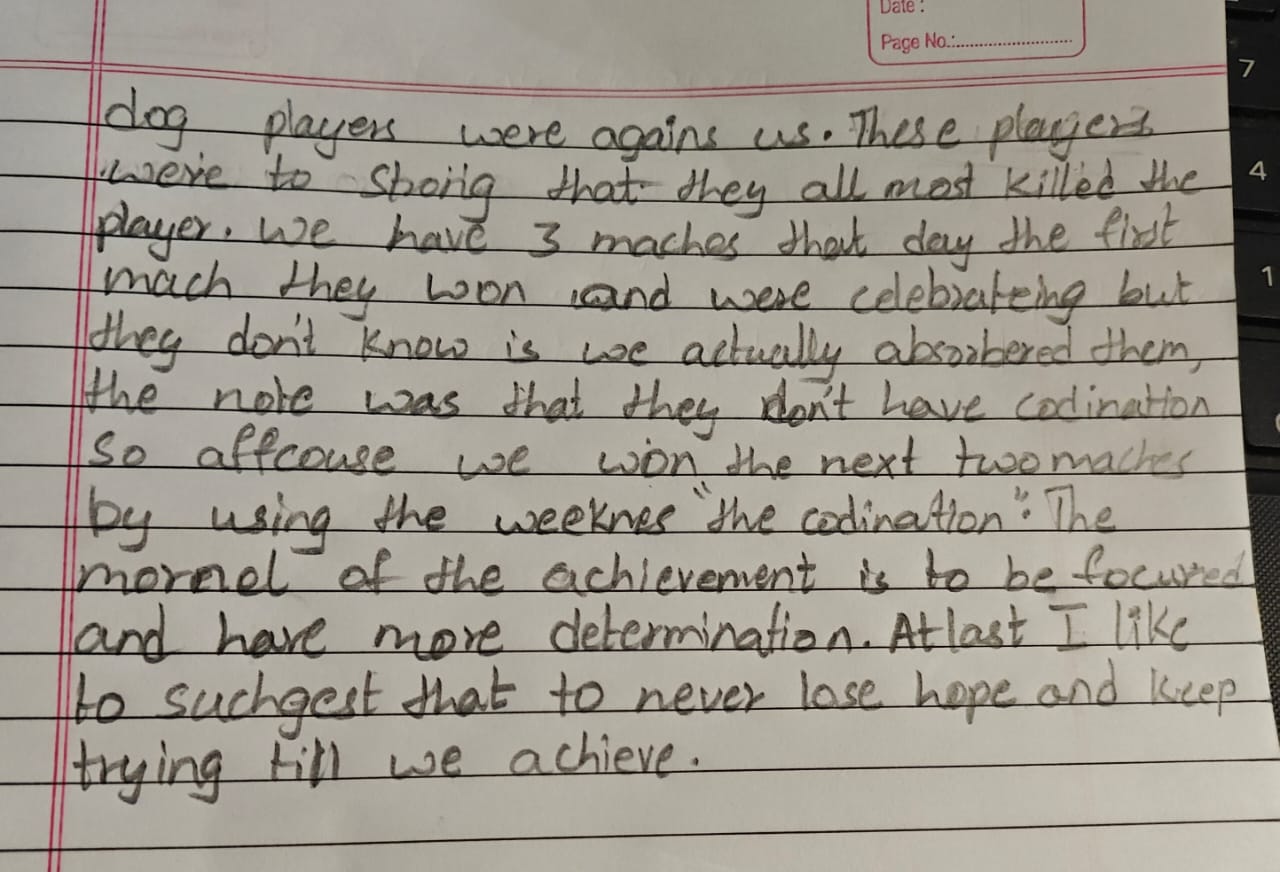 Date :
Page No.:
dog players were agains us. These players
were to strong that they all most killed the
player. We have 3 maches that day the first
mach they won and were celebrateing but
they don't know is we actually absorbered them,
the note was that they don't have codination
So affcouse we won the next two maches
by using the weeknes "the codination". The
mornel of the achievement is to be focured
and have more determination. At last I like
to suchgest that to never lose hope and keep
trying till we achieve.
7
4
1